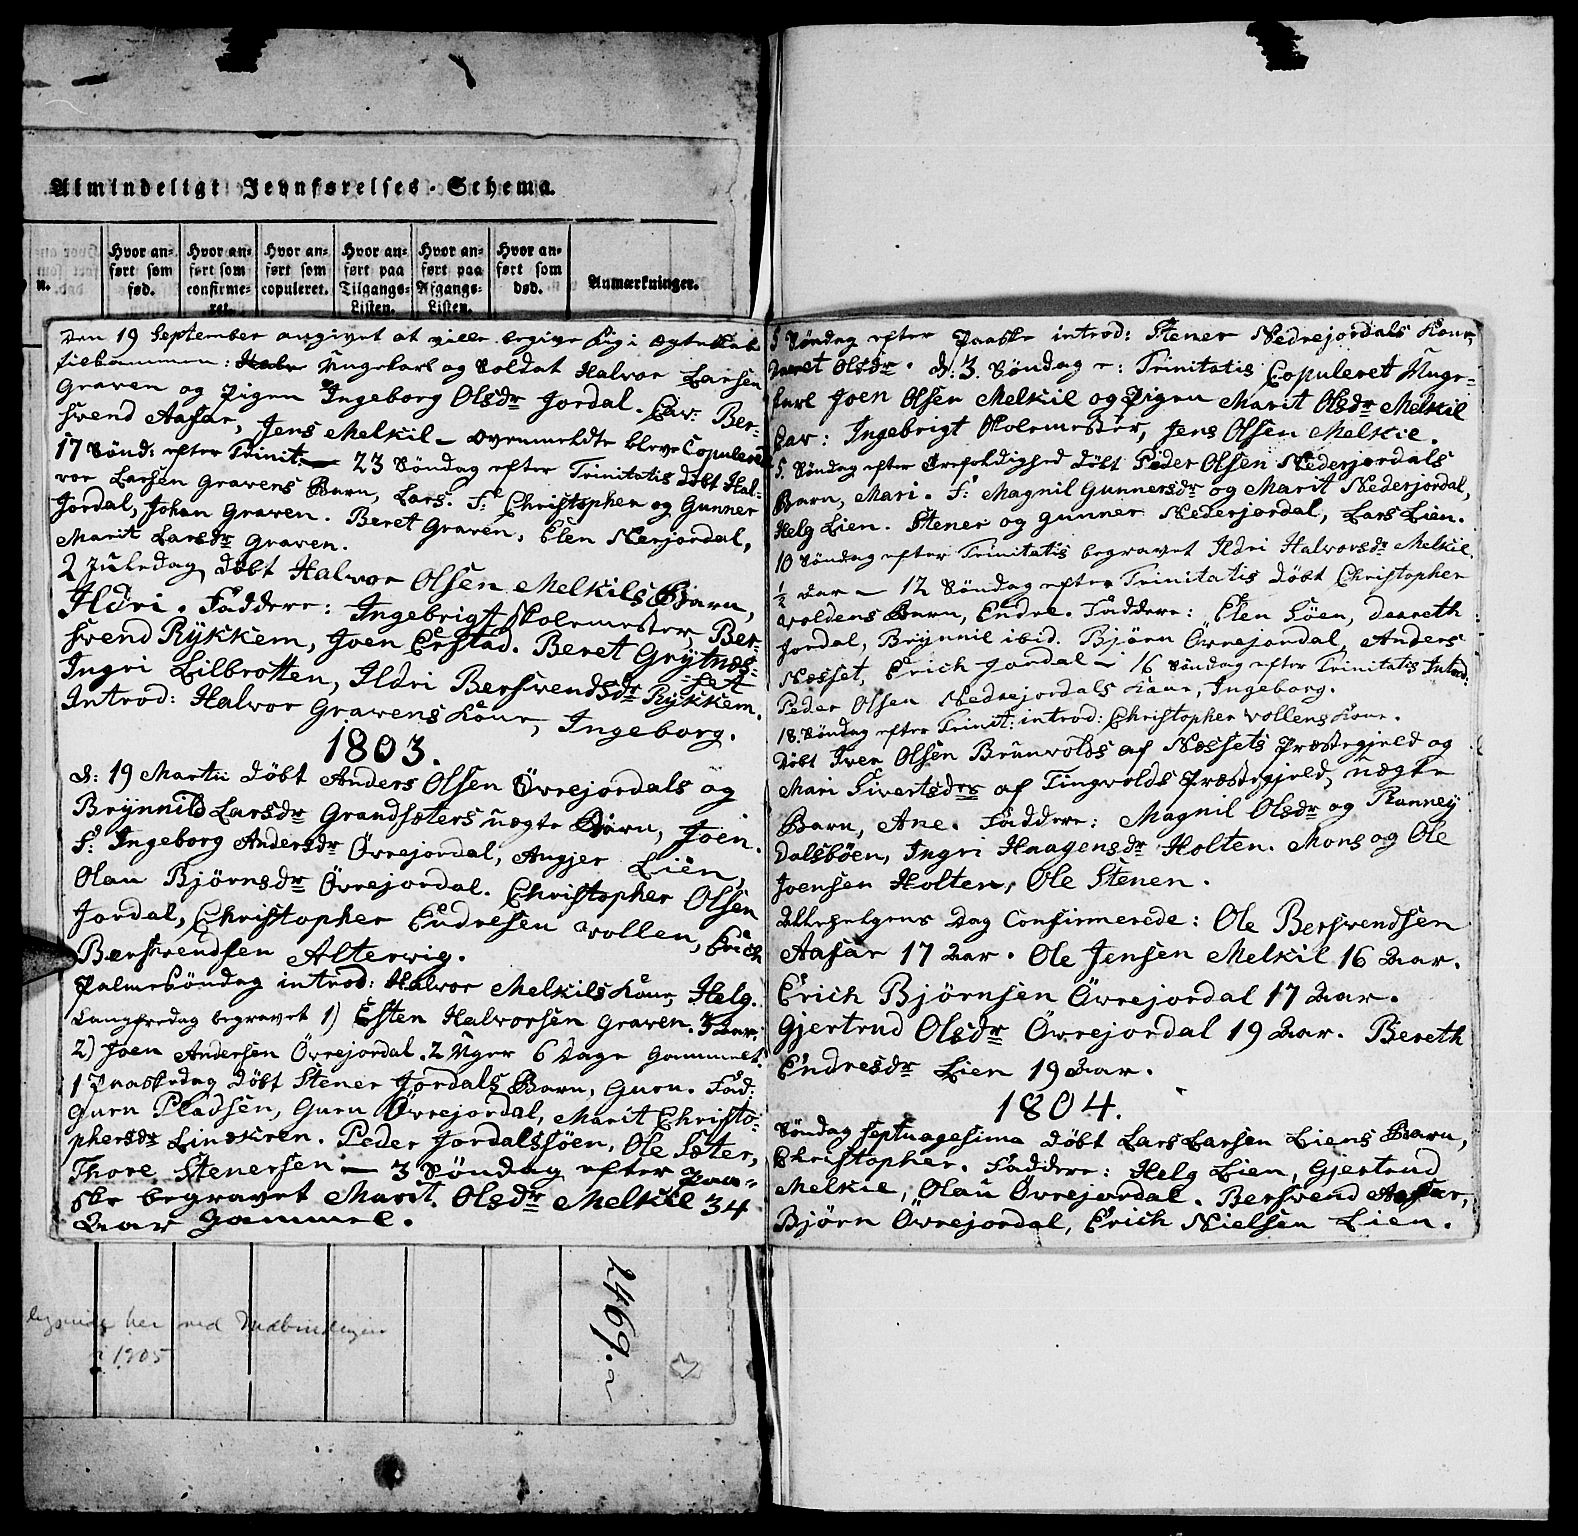 Almindeligt Jevnførelses-Schema.
Hvor an-
ført som
fød.
Hvor an-
ført som
confirme-
ret.
Hvor an-
ført som
copuleret.
Hvor an-
ført paa
Tilgangs-
Listen.
Hvor an-
ført paa
Afgangs-
Listen.
Hvor an-
ført som
død.
Anmærkninger.
n.
Den 19 September angivet at ville begive sig i Ægteskab
Ungekarl og Soldat Halvor Larsen
Graven og Pigen Ingeborg Olsdr Jordal. Cav: Ber-
svend Aafar, Jens Melkil — ovenmeldte bleve Copuleret
17 Sønd: efter Trinit: — 23 Søndag efter Trinitatis døbt Hal-
vor Larsen Gravens Barn, Lars. F: Christopher og Gunner
Jordal, Johan Graven. Beret Graven, Elen Nerjordal,
Marit Larsdr Graven.
2 Juledag døbt Halvor Olsen Melkils Barn,
Ildri. Faddere: Ingebrigt Skolemester Ber-
svend Rykkem, Joen Erstad. Beret Grytnes-
set
Ingri Lilbrotten, Ildri Bersvendsdr Rykkem.
Introd: Halvor Gravens Kone, Ingeborg.
1803.
d: 19 Martii døbt Anders Olsen Øvrejordals og
Brynnild Larsdr Grandsæters uægte Barn, Joen.
F: Ingeborg Andersdr Øvrejordal, Angjer Lien,
Olau Bjørnsdr Øvrejordal. Christopher Olsen
Jordal, Christopher Endresen Vollen, Erich
Bersvendsen Alterwig.
Palmesøndag introd: Halvor Melkils Kone, Helg.
Langfredag begravet 1) Esten Halvorsen Graven. 3 Aar.
2) Joen Andersen Øvrejordal. 2 Uger 6 Dage gammel.
1 Paaskedag døbt Stener Jordals Barn, Guru. Fad:
Guru Pladsen, Guru Øvrejordal, Marit Christo-
phersdr Linækren. Peder Jordalssøen, Ole Sæter,
Thore Stenersen — 3 Søndag efter Paa-
ske begravet Marit Olsdr Melkil 34
Aar gammel.
her ved Indbindingen
i 1905
2469.
5 Søndag efter Paaske introd: Stener Nedrejordals Kone,
Maret Olsdr. d: 3. Søndag e: Trinitatis Copuleret Unge-
karl Joen Olsen Melkil og Pigen Marit Olsdr Melkil
Cav: Ingebrigt Skolemester, Jens Olsen Melkil.
5. Søndag efter Trefoldighed døbt Peder Olsen Nederjordals
Barn, Mari. F: Magnil Gunnersdr og Marit Nederjordal,
Helg Lien. Stener og Gunner Nederjordal, Lars Lien.
10 Søndag efter Trinitatis begravet Ildri Halvorsdr Melkil.
1/2 Aar — 12 Søndag efter Trinitatis døbt Christopher
Woldens Barn, Endre. Faddere: Elen Søen, Dareth
Jordal, Brynnil ibid. Bjørn Øvrejordal, Anders
Næsset, Erich Jordal — 16 Søndag efter Trinitatis Introd:
Peder Olsen Nedrejordals Kone, Ingeborg.
18. Søndag efter Trinit: introd: Christopher Vollens Kone.
Døbt Iver Olsen Brunvolds af Næssets Præstegjeld og
Mari Sivertsdrs af Tingvolds Præstegjeld, uægte
Barn, Ane. Faddere: Magnil Olsdr og Ranney
Dalsbøen, Ingri Haagensdr Holten. Mons og Ole
Joensen Holten, Ole Stenen.
Allehelgens Dag Confirmerede: Ole Bersvendsen
Aafar 17 Aar. Ole Jensen Melkil 16 Aar.
Erich Bjørnsen Øvrejordal 17 Aar.
Gjertrud Olsdr Øvrejordal 19 Aar. Bereth
Endresdr Lien 19 Aar.
1804.
Søndag Septuagesima døbt Lars Larsen Liens Barn,
Christopher. Faddere: Helg Lien, Gjertrud
Melkil, Olau Øvrejordal. Bersvend Aafar,
Bjørn Øvrejordal, Erich Nielsen Lien.